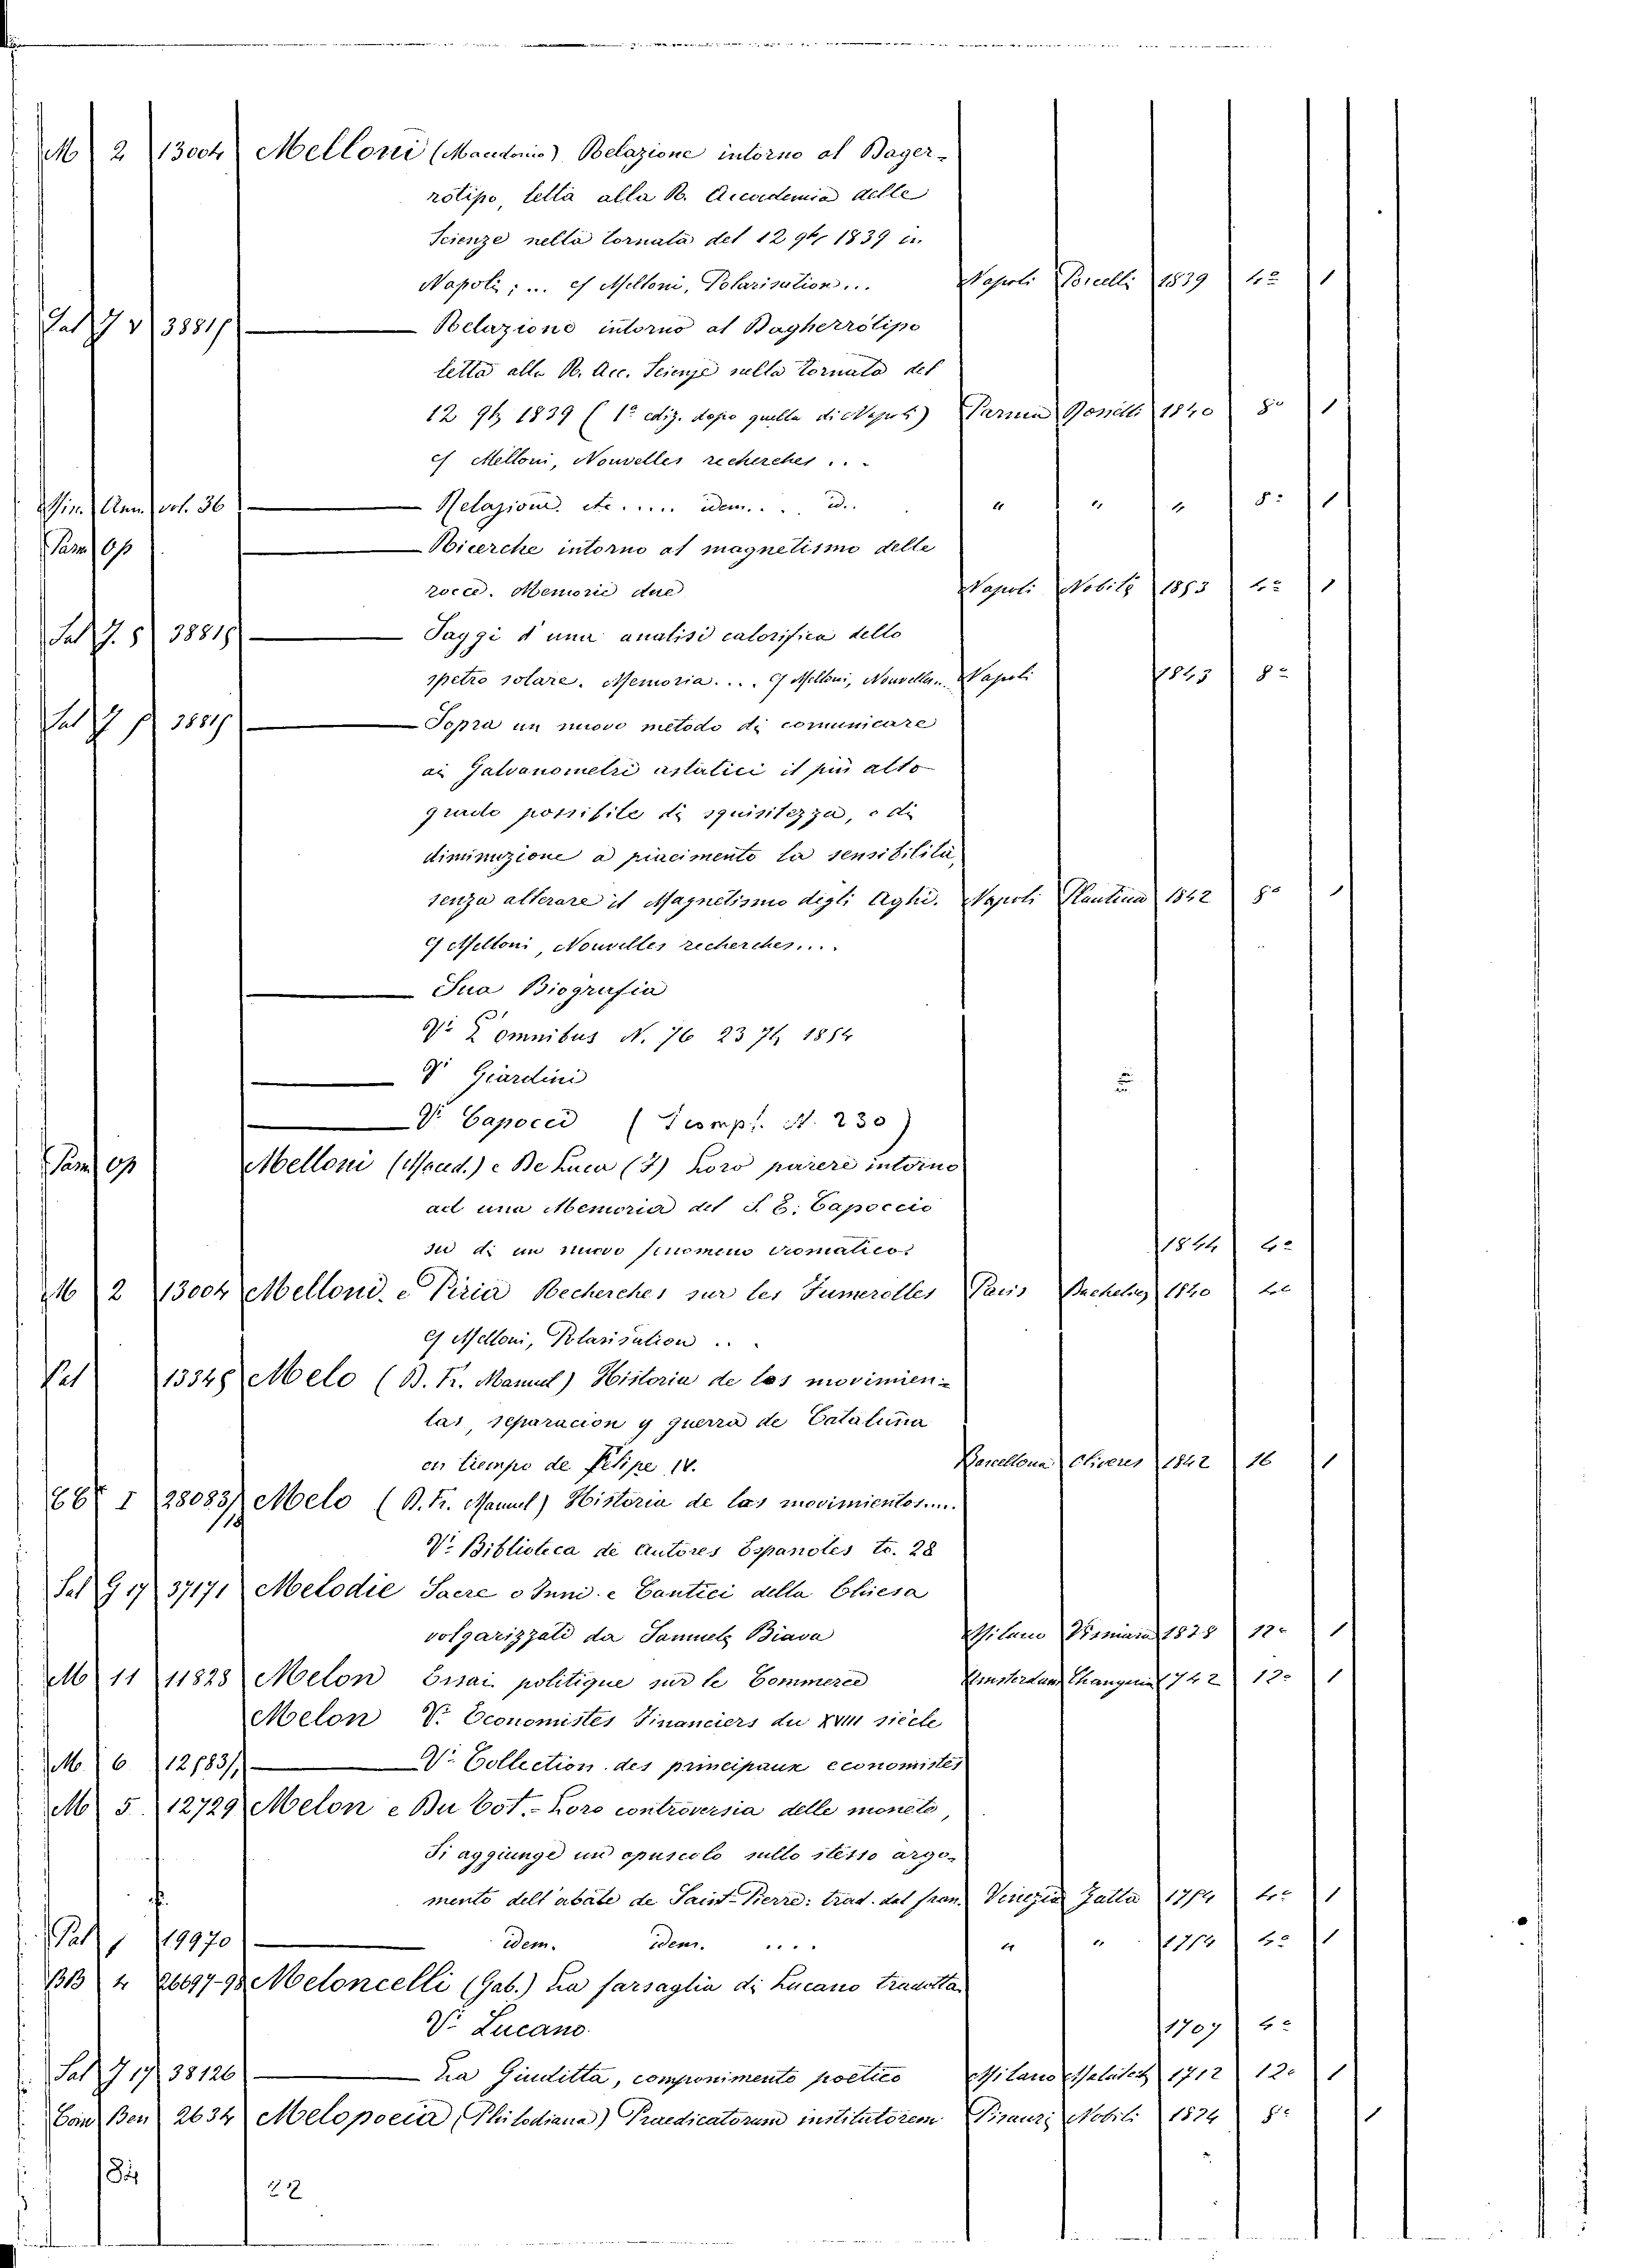 M 2 13004 Melloni (Macedonio) Relazione intorno al Dager-
rotipo, letta alla R. Accademia delle
Scienze nella tornata del 12 9br 1839 in
Napoli; ... cf Melloni, Polarisation... Napoli Porcelli 1839 4º 1
Sal J v 3881/ Relazione intorno al Dagherrotipo
letta alla R. Acc. Scienze nella tornata del
12 9b 1839 (1ª ediz. dopo quella di Napoli) Parma 1840 8º 1
cf Melloni, Nouvelles recherches...
Min. Ann. vol. 36 Relazione etc..... idem.... id. " " " 8º 1
Pam Op Ricerche intorno al magnetismo delle
rocce. Memorie due Napoli Nobile 1853 4º 1
Sal J. 5 3881/ Saggi d'una analisi calorifica dello
spetro solare. Memoria.... cf Melloni, Nouvelles.. Napoli 1843 8º
Sal J 3881/ Sopra un nuovo metodo di comunicare
ai Galvanometri astatici il più alto
grado possibile di squisitezza, e di
diminuzione a piacimento la sensibilità,
senza alterare il Magnetismo degli Aghi. Napoli Plautina 1842 8º 1
cf Melloni, Nouvelles recherches....
Sua Biografia
Vi L'omnibus N. 76 23 7b 1854
Vi Giardini
Vi Capocci ( N. 230)
Pam Op Melloni (Maced.) e De Luca (F) Loro parere intorno
ad una Memoria del S. E. Capoccio
su di un nuovo fenomeno cromatico. 1844 4º
M 2 13004 Melloni e Piria Recherches sur les Fumerolles Paris Bachelier 1840 4º
cf Melloni, Polarisation...
Pal 13348 Melo (D. Fr. Manuel) Historia de los movimien-
tas, separacion y guerra de Cataluña
en tiempo de Felipe IV. Barcellona Oliveres 1842 16 1
I 28083/18 Melo (D. Fr. Manuel) Historia de las movimientos....
Vi Biblioteca de Autores Espanoles to. 28
Sal G 17 37171 Melodie Sacre o Inni e Cantici della Chiesa
volgarizzati da Samuele Biava Milano 1828 12º 1
M 11 11828 Melon Essai politique sur le Commerce Amsterdam Changuion 1742 12º 1
Melon Vi Economistes Financiers du XVIII siècle
M 6 12583/1 Vi Collection des principaux economistes
M 5. 12729 Melon e Du Tot.- Loro controversia delle monete,
Si aggiunge un opuscolo sullo stesso argo-
mento dell'abate de Saint-Pierre: trad. dal fran. Venezia Zatta 1754 4º 1
Pal 19970 idem. idem. .... " " 1754 4º 1
BB 4 26697-98 Meloncelli (Gab.) La farsaglia di Lucano tradotta
Vi Lucano. 1707 4º
Sal J 17 38126 La Giuditta, componimento poetico Milano Malatest 1712 12º 1
Com Ben 2634 Melopoeia (Philodiana) Praedicatorum institutorem Pisauri Nobili 1834 8º 1
84
22